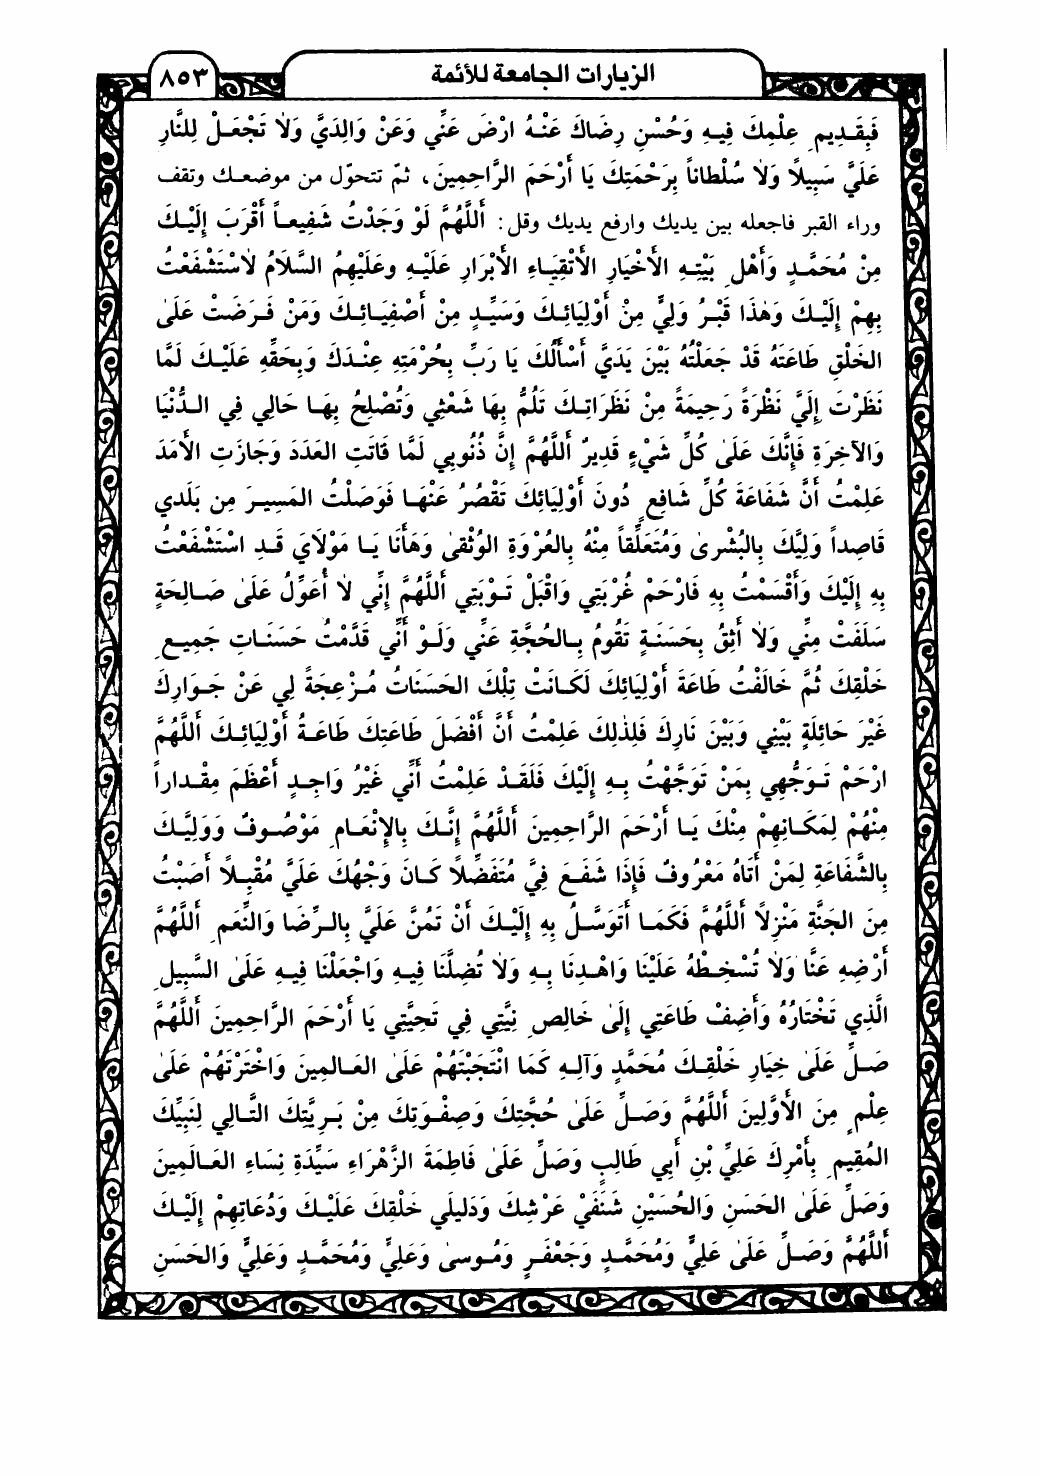 الزيارات الجامعة للأئمة
٨٥٣
فَبِقَـدِيمِ عِلْمِكَ فِيـهِ وَحُسْنِ رِضَاكَ عَنْـهُ ارْضَ عَنِّي وَعَنْ وَالِدَيَّ وَلاٰ تَجْعَـلْ لِلنَّارِ
عَلَيَّ سَبِيلاً وَلاٰ سُلْطاناً بِرَحْمَتِكَ يَا أَرْحَمَ الرَّاحِمِينَ، ثمّ تتحوّل من موضعـك وتقف
وراء القبر فاجعله بين يديك وارفع يديك وقل: أَللَّهُمَّ لَوْ وَجَدْتُ شَفِيعـاً أَقْرَبَ إِلَيْـكَ
مِنْ مُحَمَّـدٍ وَأَهْلِ بَيْتِـهِ الأَخْيَارِ الأَتْقِيَـاءِ الأَبْرَارِ عَلَيْـهِ وعَلَيْهِمُ السَّلاَمُ لاَسْتَشْفَعْتُ
بِهِمْ إِلَيْـكَ وَهٰذَا قَبْـرُ وَلِيٍّ مِنْ أَوْلِيَائِـكَ وَسَيِّـدٍ مِنْ أَصْفِيَـائِـكَ وَمَنْ فَـرَضْتَ عَلَىٰ
الخَلْقِ طَاعَتَهُ قَدْ جَعَلْتُهُ بَيْنَ يَدَيَّ أَسْأَلُكَ يَا رَبِّ بِحُرْمَتِهِ عِنْـدَكَ وَبِحَقِّهِ عَلَيْـكَ لَمَّا
نَظَرْتَ إِلَيَّ نَظْرَةً رَحِيمَةً مِنْ نَظَرَاتِـكَ تَلُمُّ بِهَا شَعْثِي وَتُصْلِحُ بِهَـا حَالِي فِي الـدُّنْيَا
وَالآخِرَةِ فَإِنَّكَ عَلَىٰ كُلِّ شَيْءٍ قَدِيرٌ أَللَّهُمَّ إِنَّ ذُنُوبِي لَمَّا فَاتَتِ العَدَدَ وَجَازَتِ الأَمَدَ
عَلِمْتُ أَنَّ شَفَاعَةَ كُلِّ شَافِعٍ دُونَ أَوْلِيَائِكَ تَقْصُرُ عَنْهَـا فَوَصَلْتُ المَسِيـرَ مِن بَلَدي
قَاصِداً وَلِيَّكَ بِالبُشْرىٰ وَمُتَعَلِّقاً مِنْهُ بِالعُرْوَةِ الوُثْقىٰ وَهَأَنَا يَـا مَوْلاَيَ قَـدِ اسْتَشْفَعْتُ
بِهِ إِلَيْكَ وَأَقْسَمْتُ بِهِ فَارْحَمْ غُرْبَتِي وَاقْبَلْ تَـوْبَتِي أَللَّهُمَّ إِنِّي لاٰ أُعَوِّلُ عَلَىٰ صَـالِحَةٍ
سَلَفَتْ مِنِّي وَلاٰ أَثِقُ بِحَسَنَـةٍ تَقُومُ بِـالحُجَّةِ عَنِّي وَلَـوْ أَنِّي قَدَّمْتُ حَسَنَـاتِ جَمِيـعِ
خَلْقِكَ ثُمَّ خَالَفْتُ طَاعَةَ أَوْلِيَائِكَ لَكَـانَتْ تِلْكَ الحَسَنَاتُ مُـزْعِجَةً لِي عَنْ جَـوَارِكَ
غَيْرَ حَائِلَةٍ بَيْنِي وَبَيْنَ نَارِكَ فَلِذٰلِكَ عَلِمْتُ أَنَّ أَفْضَلَ طَاعَتِكَ طَاعَـةُ أَوْلِيَائِـكَ أَللَّهُمَّ
ارْحَمْ تَـوَجُّهِي بِمَنْ تَوَجَّهْتُ بِـهِ إِلَيْكَ فَلَقَـدْ عَلِمْتُ أَنِّي غَيْرُ وَاجِـدٍ أَعْظَمَ مِقْـداراً
مِنْهُمْ لِمَكَـانِهِمْ مِنْكَ يَـا أَرْحَمَ الرَّاحِمِينَ أَللَّهُمَّ إِنَّـكَ بِالإِنْعَـامِ مَوْصُـوفٌ وَوَلِيَّـكَ
بِالشَّفَاعَةِ لِمَنْ أَتَاهُ مَعْرُوفٌ فَإِذَا شَفَـعَ فِيَّ مُتَفَضِّلاً كَـانَ وَجْهُكَ عَلَيَّ مُقْبِـلاً أَصَبْتُ
مِنَ الجَنَّةِ مَنْزِلاً أَللَّهُمَّ فَكَمَـا أَتَوَسَّـلُ بِهِ إِلَيْـكَ أَنْ تَمُنَّ عَلَيَّ بِالـرِّضَا وَالنِّعَمِ أَللَّهُمَّ
أَرْضِهِ عَنَّا وَلاٰ تُسْخِـطْهُ عَلَيْنَا وَاهْـدِنَا بِـهِ وَلاٰ تُضِلَّنَا فِيـهِ وَاجْعَلْنَا فِيـهِ عَلَىٰ السَّبِيلِ
الَّذِي تَخْتَارُهُ وَأَضِفْ طَاعَتِي إِلَىٰ خَالِصِ نِيَّتِي فِي تَحِيَّتِي يَا أَرْحَمَ الرَّاحِمِينَ أَللَّهُمَّ
صَـلِّ عَلَىٰ خِيَارِ خَلْقِـكَ مُحَمَّدٍ وَآلِـهِ كَمَا انْتَجَبْتَهُمْ عَلَىٰ العَـالَمِينَ وَاخْتَرْتَهُمْ عَلَىٰ
عِلْمٍ مِنَ الأَوَّلِينَ أَللَّهُمَّ وَصَـلِّ عَلَىٰ حُجَّتِكَ وَصِفْـوَتِكَ مِنْ بَـرِيَّتِكَ التَّـالِي لِنَبِيِّكَ
المُقِيمِ بِأَمْرِكَ عَلِيِّ بْنِ أَبِي طَالِبٍ وَصَلِّ عَلَىٰ فَاطِمَةَ الزَّهْرَاءِ سَيِّدَةِ نِسَاءِ العَـالَمِينَ
وَصَلِّ عَلَىٰ الحَسَنِ وَالحُسَيْنِ شَنَفَيْ عَرْشِكَ وَدَلِيلَي خَلْقِكَ عَلَيْـكَ وَدُعَاتِهِمْ إِلَيْـكَ
أَللَّهُمَّ وَصَـلِّ عَلَىٰ عَلِيٍّ وَمُحَمَّـدٍ وَجَعْفَـرٍ وَمُـوسىٰ وَعَلِيٍّ وَمُحَمَّـدٍ وَعَلِيٍّ وَالحَسَنِ